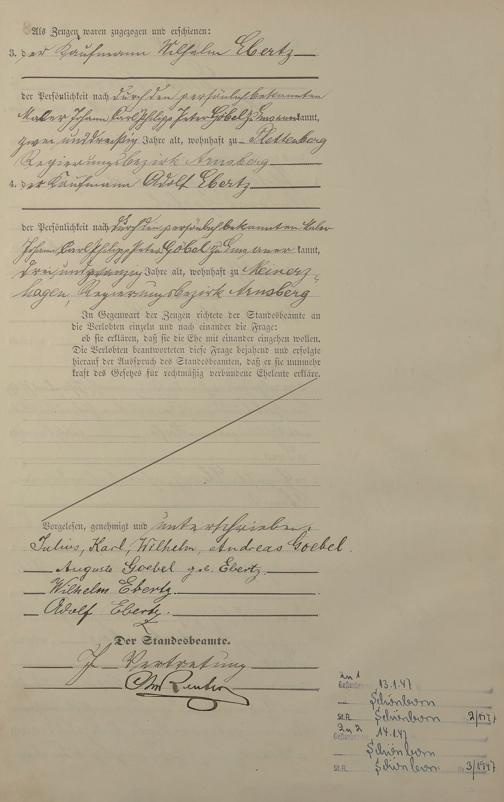 Als Zeugen waren zugezogen und erschienen:
3. der Kaufmann Wilhelm Ebertz
der Persönlichkeit nach durch den persönlich bekannten
Maler Johann Karl Philipp Peter Göbel zu kannt,
zwei und dreißig Jahre alt, wohnhaft zu Plettenberg
Regierungsbezirk Arnsberg
4. der Kaufmann Adolf Ebertz
der Persönlichkeit nach durch den persönlich bekannten Maler
Johann Karl Philipp Peter Göbel zu kannt,
drei und zwanzig Jahre alt, wohnhaft zu Meinerz-
hagen, Regierungsbezirk Arnsberg
In Gegenwart der Zeugen richtete der Standesbeamte an
die Verlobten einzeln und nach einander die Frage:
ob sie erklären, daß sie die Ehe mit einander eingehen wollen.
Die Verlobten beantworteten diese Frage bejahend und erfolgte
hierauf der Ausspruch des Standesbeamten, daß er sie nunmehr
kraft des Gesetzes für rechtmäßig verbundene Eheleute erkläre.
Vorgelesen, genehmigt und unterschrieben.
Julius, Karl, Wilhelm, Andreas Goebel.
Auguste Goebel geb. Ebertz.
Wilhelm Ebertz.
Adolf Ebertz.
Der Standesbeamte.
In Vertretung
zu 1
13.1.47
Schönborn
St.A. Schönborn 2/1947
zu 2
14.1.47
Schönborn
St.A. Schönborn 3/1947